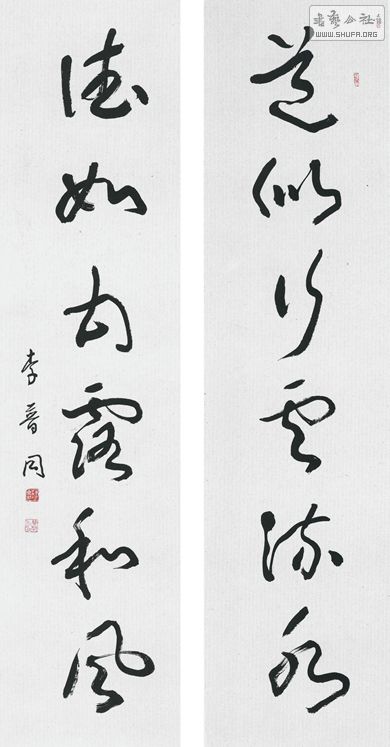 道似行雲流水
德如甘露和風
李普同
书艺公社
WWW.SHUFA.ORG